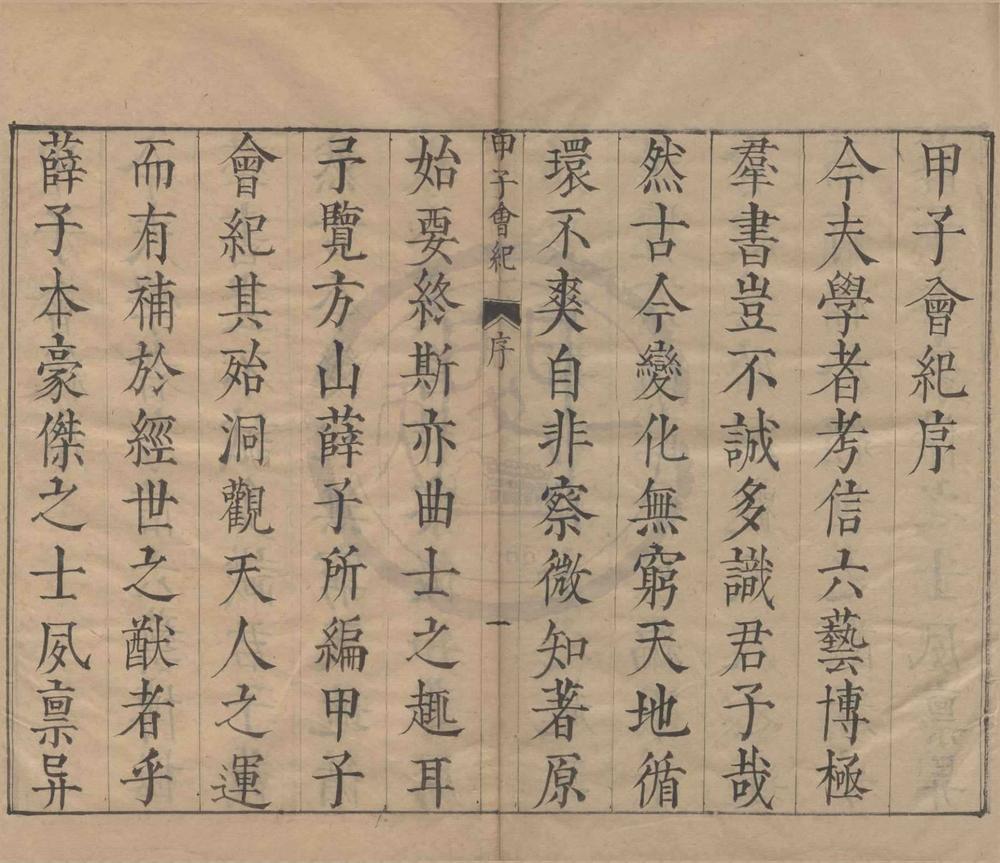 甲子會紀序
今夫學者考信六藝博極
羣書豈不誠多識君子哉
然古今變化無窮天地循
環不爽自非察微知著原
甲子會紀 序 一
始要終斯亦曲士之趣耳
予覽方山薛子所編甲子
會紀其殆洞觀天人之運
而有補於經世之猷者乎
薛子本豪傑之士夙禀异